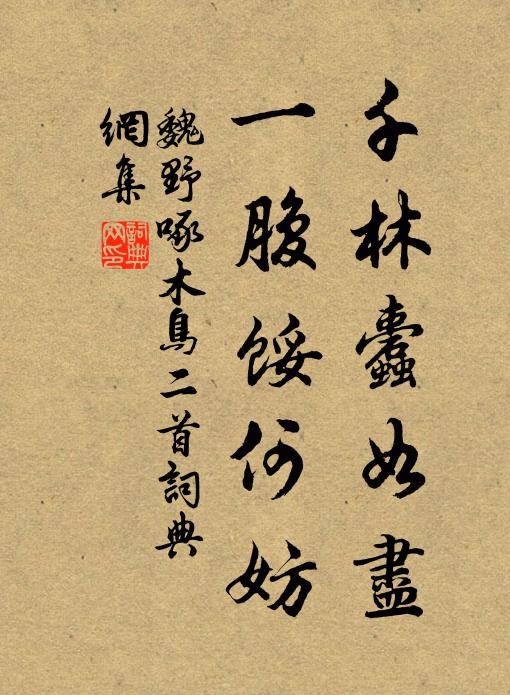 千林蠹如盡
一腹餒何妨
魏野啄木鳥二首詞典
網集
詞典
网印